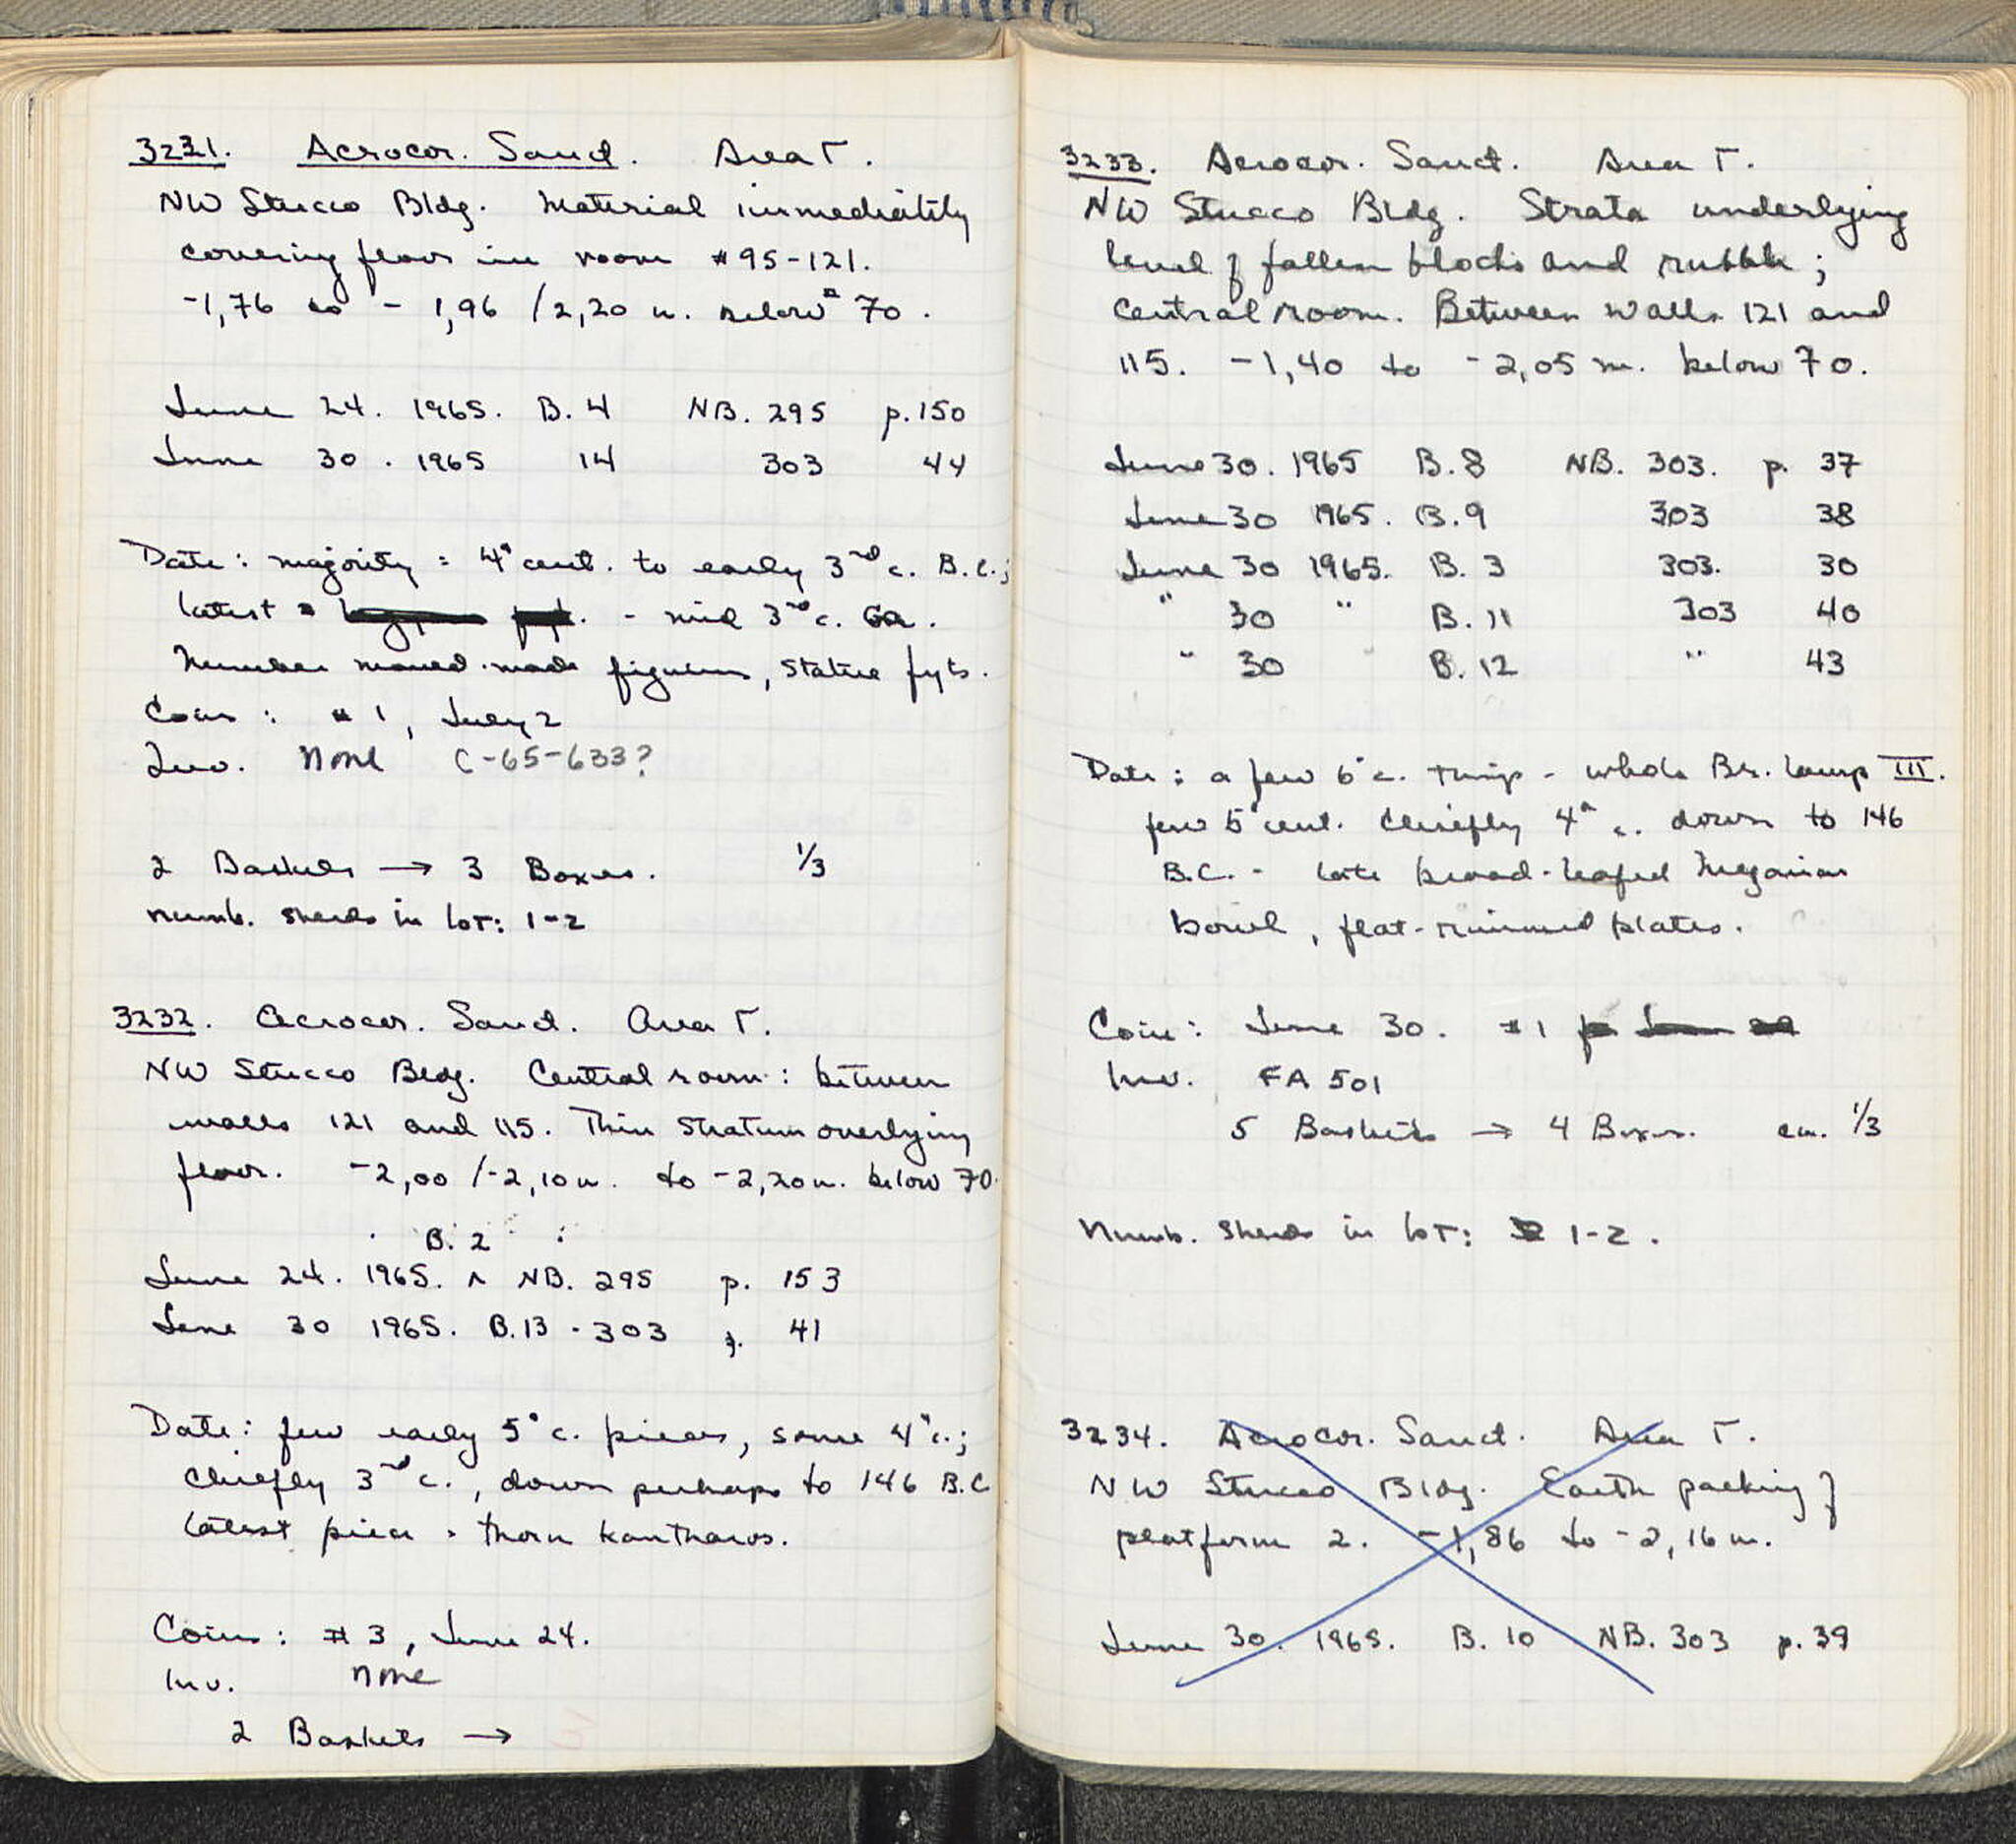 3231. Acrocor. Sanct. Area Γ.
NW Stucco Bldg. Material immediately
covering floor in room #95-121.
-1,76 to - 1,96 /2,20 m. below # 70.
June 24. 1965. B. 4 NB. 295 p. 150
June 30. 1965 14 303 44
Date: majority = 4th cent. to early 3rd c. B.C.;
latest = - mid 3rd c.
Number mould-made figurines, statue fgts.
Coin: # 1, July 2
Inv. None C-65-633?
2 Baskets → 3 Boxes. 1/3
Numb. sherds in lot: 1-2
3232. Acrocor. Sanct. Area Γ.
NW Stucco Bldg. Central room: between
walls 121 and 115. Thin stratum overlying
floor. -2,00 /-2,10 m. to -2,20 m. below 70.
B. 2
June 24. 1965. ^ NB. 295 p. 153
June 30 1965. B.13 - 303 p. 41
Date: few early 5th c. pieces, some 4th c.;
chiefly 3rd c., down perhaps to 146 B.C
latest piece = thorn kantharos.
Coins: # 3, June 24.
Inv. None
2 Baskets →
3233. Acrocor. Sanct. Area Γ.
NW Stucco Bldg. Strata underlying
level of fallen blocks and rubble;
central room. Between walls 121 and
115. -1,40 to -2,05 m. below 70.
June 30. 1965 B. 8 NB. 303. p. 37
June 30 1965. B. 9 303 38
June 30 1965. B. 3 303. 30
" 30 " B. 11 303 40
" 30 " B. 12 " 43
Date: a few 6th c. things - whole Br. lamp III.
few 5th cent. Chiefly 4th c. down to 146
B.C. - late broad-leafed Megarian
bowl, flat-rimmed plates.
Coin: June 30. #1
Inv. FA 501
5 Baskets → 4 Boxes. ca. 1/3
Numb. sherds in lot: 1-2.
3234. Acrocor. Sanct. Area Γ.
NW Stucco Bldg. Earth packing of
platform 2. -1,86 to -2,16 m.
June 30. 1965. B. 10 NB. 303 p. 39